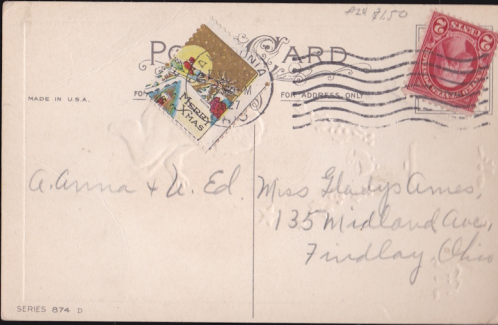 P24 $1.50
POST CARD
MADE IN U.S.A.
FOR ADDRESS ONLY
2 CENTS 2
MERRY
XMAS
A. Anna & U. Ed.
Miss Gladys Ames,
135 Midland Ave,
Findlay, Ohio
SERIES 874 D